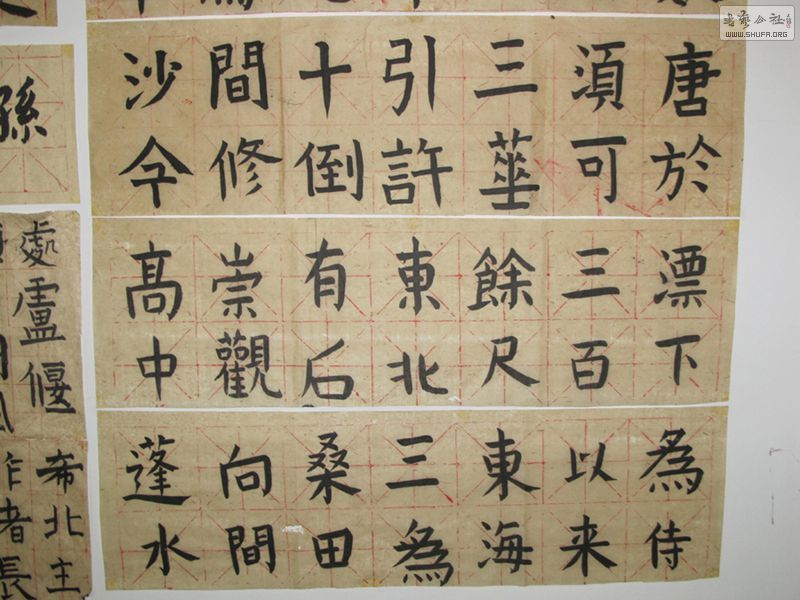 唐於
須可
三華
引許
十倒
間修
沙今
漂下
三百
餘尺
東北
有石
崇觀
高中
為侍
以来
東海
三為
桑田
向間
蓬水
孫
處盧偃
希北主
作者長
書藝公社
WWW.SHUFA.ORG